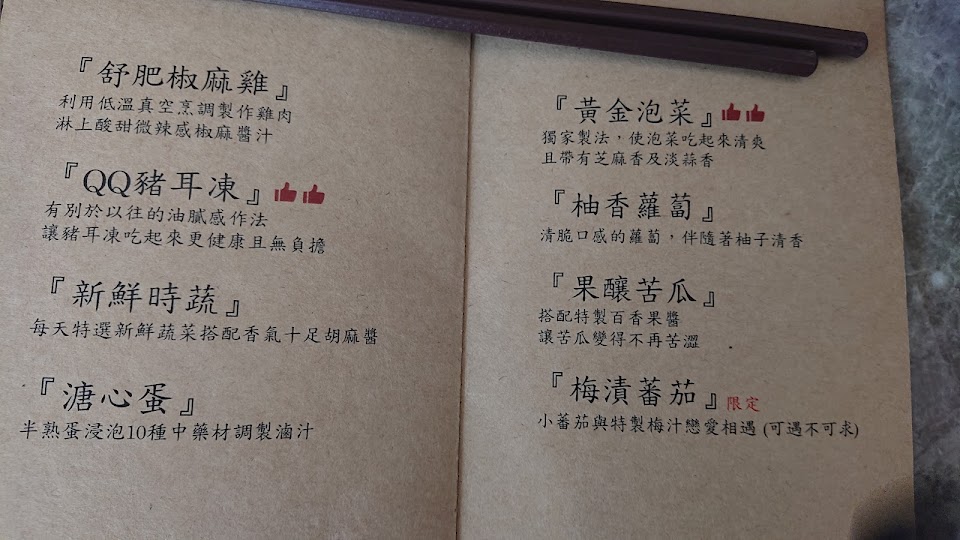 『舒肥椒麻雞』
利用低溫真空烹調製作雞肉
淋上酸甜微辣感椒麻醬汁
『QQ豬耳凍』
有別於以往的油膩感作法
讓豬耳凍吃起來更健康且無負擔
『新鮮時蔬』
每天特選新鮮蔬菜搭配香氣十足胡麻醬
『溏心蛋』
半熟蛋浸泡10種中藥材調製滷汁
『黃金泡菜』
獨家製法，使泡菜吃起來清爽
且帶有芝麻香及淡蒜香
『柚香蘿蔔』
清脆口感的蘿蔔，伴隨著柚子清香
『果釀苦瓜』
搭配特製百香果醬
讓苦瓜變得不再苦澀
『梅漬蕃茄』限定
小蕃茄與特製梅汁戀愛相遇 (可遇不可求)